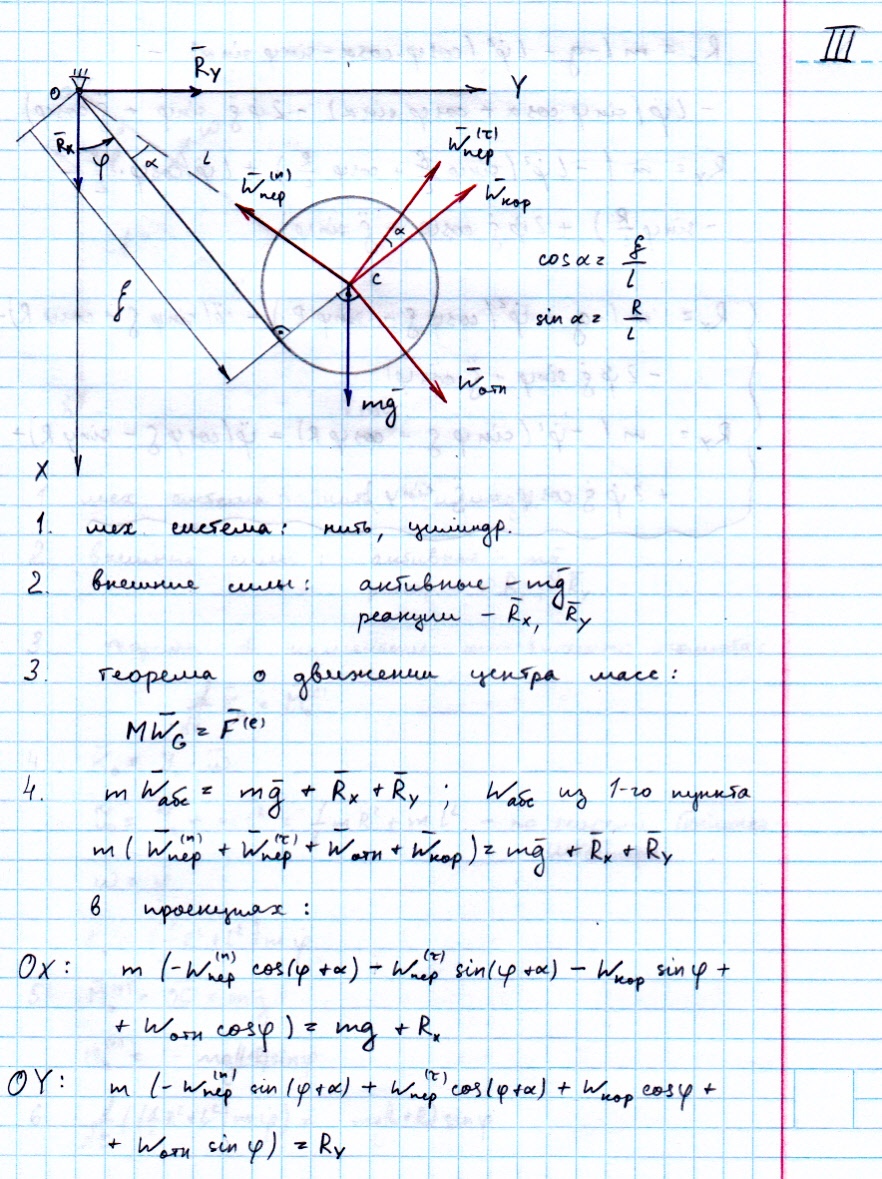 III
R̄y
Y
O
R̄x
φ
α
l
W̄пер⁽ⁿ⁾
W̄пер⁽ᵗ⁾
W̄кор
α
C
ξ
cos α = ξ/l
sin α = R/l
W̄отн
mḡ
X
1. мех. система: нить, цилиндр.
2. внешние силы: активные – mḡ
реакции – R̄x, R̄y
3. теорема о движении центра масс:
MW̄G = F̄⁽ᵉ⁾
4. m W̄абс = mḡ + R̄x + R̄y ; Wабс из 1-го пункта
m ( W̄пер⁽ⁿ⁾ + W̄пер⁽ᵗ⁾ + W̄отн + W̄кор ) = mḡ + R̄x + R̄y
в проекциях:
OX: m (-Wпер⁽ⁿ⁾ cos(φ+α) - Wпер⁽ᵗ⁾ sin(φ+α) - Wкор sinφ +
+ Wотн cosφ) = mg + Rx
OY: m (-Wпер⁽ⁿ⁾ sin(φ+α) + Wпер⁽ᵗ⁾ cos(φ+α) + Wкор cosφ +
+ Wотн sinφ) = Ry